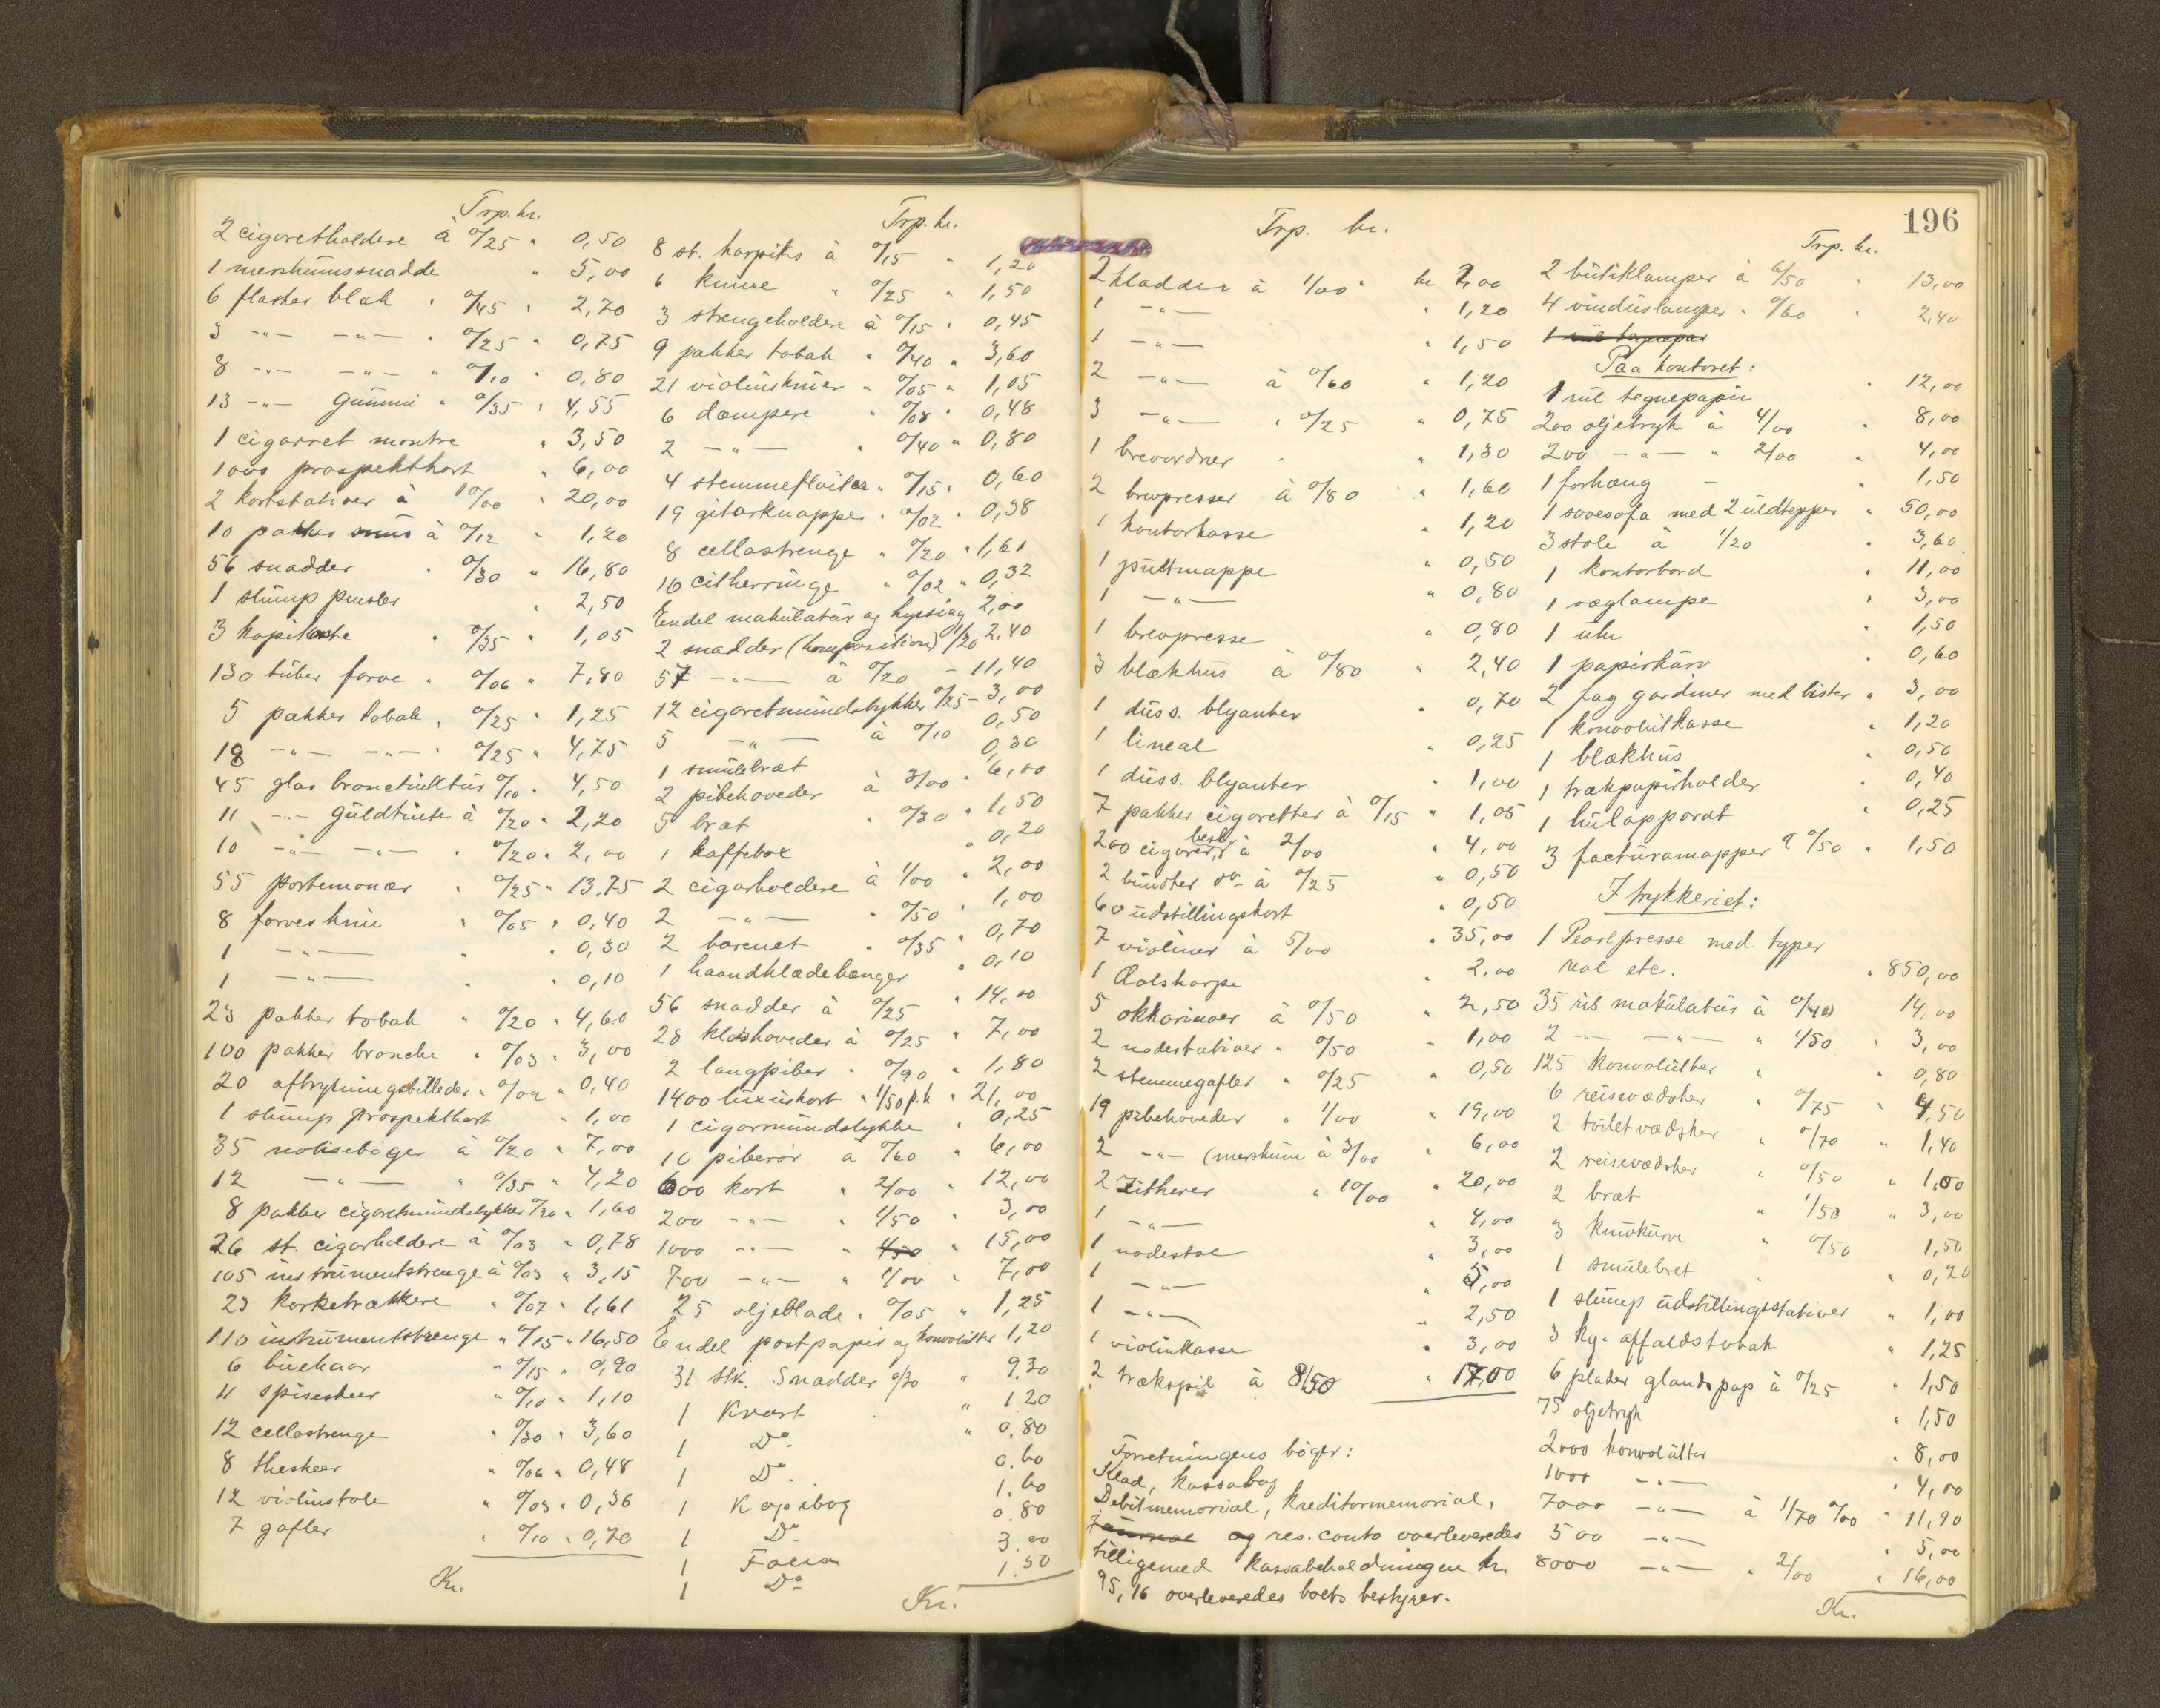 Trp. kr.
2 cigaretholdere à 0/25 " 0,50
1 merskumssnadde " 5,00
6 flasker blæk " 0/45 " 2,70
3 -"- -"- " 0/25 " 0,75
8 -"- -"- " 0/10 " 0,80
13 -"- gummi " 0/35 " 4,55
1 cigarret montre " 3,50
1000 prospektkort " 6,00
2 kortstativer à 10/00 " 20,00
10 pakker snus à 0/12 " 1,20
56 snadder " 0/30 " 16,80
1 slump pensler " 2,50
3 " 0/35 " 1,05
130 tuber farve " 0/06 " 7,80
5 pakker tobak " 0/25 " 1,25
18 -"- -"- " 0/25 " 4,75
45 glas broncetinktur 0/10 " 4,50
11 -"- guldtinte à 0/20 " 2,20
10 -"- -"- " 0/20 " 2,00
55 portemonær " 0/25 " 13,75
8 farveskrin " 0/05 " 0,40
1 -"- " " 0,30
1 -"- " " 0,10
23 pakker tobak " 0/20 " 4,60
100 pakker bronche " 0/03 " 3,00
20 aftrykningsbilleder " 0/02 " 0,40
1 slump prospektkort " 1,00
35 notisebøger à 0/20 " 7,00
12 -"- " 0/35 " 4,20
8 pakker cigaretmundstykker 0/20 " 1,60
26 st. cigarholdere à 0/03 " 0,78
105 instrumentstrenge à 0/03 " 3,15
23 korketrækkere " 0/07 " 1,61
110 instrumentstrenge " 0/15 " 16,50
6 buehaar " 0/15 " 0,90
11 spiseskeer " 0/10 " 1,10
12 cellostrenge " 0/30 " 3,60
8 theskeer " 0/06 " 0,48
12 violinstole " 0/03 " 0,36
7 gafler " 0/10 " 0,70
Kr.
Trp. kr.
8 st. harpiks à 0/15 " 1,20
6 knive " 0/25 " 1,50
3 strengeholdere à 0/15 " 0,45
9 pakker tobak " 0/40 " 3,60
21 violinskruer " 0/05 " 1,05
6 dæmpere " 0/08 " 0,48
2 -"- " 0/40 " 0,80
4 stemmefløiter " 0/15 " 0,60
19 gitarknapper " 0/02 " 0,38
8 cellostrenge " 0/20 " 1,61
16 citherringe " 0/02 " 0,32
Endel makulatur og hyssing 2,00
2 snadder (komposition) 1/20 2,40
57 -"- à 0/20 - 11,40
12 cigaretmundstykker 0/25 - 3,00
5 -"- à 0/10 0,50
1 smulebræt 0,30
2 pibehoveder à 3/00 " 6,00
5 bræt " 0/30 " 1,50
1 kaffebox " 0,20
2 cigarholdere à 1/00 " 2,00
2 -"- " 0/50 " 1,00
2 barenet " 0/35 " 0,70
1 haandklædehænger " 0,10
56 snadder à 0/25 " 14,00
28 à 0/25 " 7,00
2 langpiber " 0/90 " 1,80
1400 luxuskort " 1/50 p.h " 21,00
1 cigarmundstykke " 0,25
10 piberør à 0/60 " 6,00
600 kort " 2/00 " 12,00
200 -"- " 1/50 " 3,00
1000 -"- " 1/50 " 15,00
700 -"- " 1/00 " 7,00
25 oljeblade " 0/05 " 1,25
Endel postpapir og konvolutter 1,20
31 stk. Snadder 0/30 " 9.30
1 Kvart " 1.20
1 Do. " 0.80
1 Do. 0.60
1 Kopibog 1.60
1 Do. 0.80
1 Folio 3.00
1 Do. 1.50
Kr.
196
Trp. kr.
2 kladder à 1/00 " kr 2,00
1 -"- " 1,20
1 -"- " 1,50
2 -"- à 0/60 " 1,20
3 -"- " 0/25 " 0,75
1 brevordner " 1,30
2 brevpresser à 0/80 " 1,60
1 kontorkasse " 1,20
1 pultmappe " 0,50
1 -"- " 0,80
1 brevpresse " 0,80
3 blækhus à 0/80 " 2,40
1 duss. blyanter " 0,70
1 lineal " 0,25
1 duss. blyanter " 1,00
7 pakker cigaretter à 0/15 " 1,05
200 cigarer, besk. à 2/00 " 4,00
2 bundter do. à 0/25 " 0,50
60 udstillingskort " 0,50
7 violiner à 5/00 " 35,00
1 Æolsharpe " 2,00
5 okkarinaer à 0/50 " 2,50
2 nodestativer " 0/50 " 1,00
2 stemmegafler " 0/25 " 0,50
19 pibehoveder " 1/00 " 19,00
2 -"- (merskum à 3/00 " 6,00
2 Zitherer " 10/00 " 20,00
1 -"- " 4,00
1 nodestol " 3,00
1 -"- " 5,00
1 -"- " 2,50
1 violinkasse " 3,00
2 trækspil à 8/50 " 17,00
Forretningens bøger:
Klad, kassabog
Debitmemorial, kreditormemorial,
Journal og res. conto overleveredes
tilligemed kassabeholdningen kr.
95,16 overleveredes boets bestyrer.
Trp. kr.
2 butiklamper à 6/50 " 13,00
4 vinduslamper " 0/60 " 2,40
1 rul tegnepap
Paa kontoret:
1 rul tegnepapir " 12,00
200 oljetryk à 4/00 " 8,00
200 -"- " 2/00 " 4,00
1 forhæng - " 1,50
1 sovesofa med 2 uldtepper " 50,00
3 stole à 1/20 " 3,60
1 kontorbord " 11,00
1 væglampe " 3,00
1 uhr " 1,50
1 papirkurv " 0,60
2 fag gardiner med lister " 3,00
1 konvolutkasse " 1,20
1 blækhus " 0,50
1 trækpapirholder " 0,40
1 hulapparat " 0,25
3 facturamapper à 0/50 " 1,50
I trykkeriet:
1 Pearlpresse med typer
real etc. " 850,00
35 ris makulatur à 0/40 14,00
2 -"- -"- " 1/50 " 3,00
125 konvolutter " " 0,80
6 reisevædsker " 0/75 " 4,50
2 toiletvædsker " 0/70 " 1,40
2 reisevædsker " 0/50 " 1,00
2 bræt " 1/50 " 3,00
3 knivkurve " 0/50 1,50
1 smulebret " 0,20
1 slump udstillingsstativer " 1,00
3 kg. affaldstobak " 1,25
6 plader glandspap à 0/25 " 1,50
75 oljetryk " 1,50
2000 konvolutter " 8,00
1000 -"- " 4,00
7000 -"- à 1/70 0/00 " 11,90
500 -"- " 5,00
8000 -"- " 2/00 " 16,00
Kr.